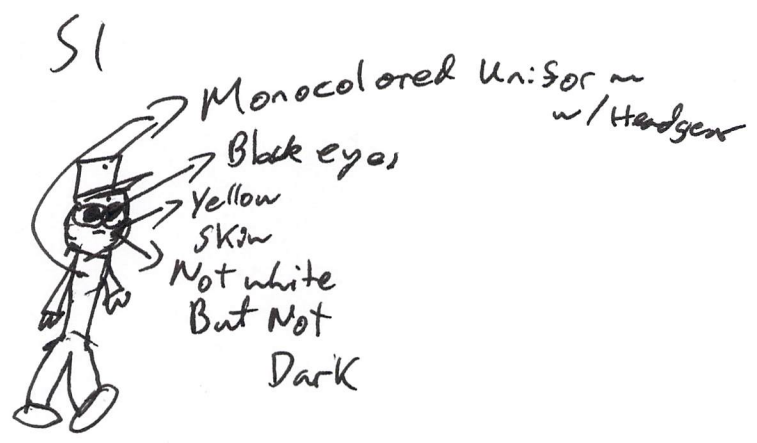 S1
Monocolored Uniform
w/Headgear
Black eyes
Yellow
Skin
Not white
But Not
Dark